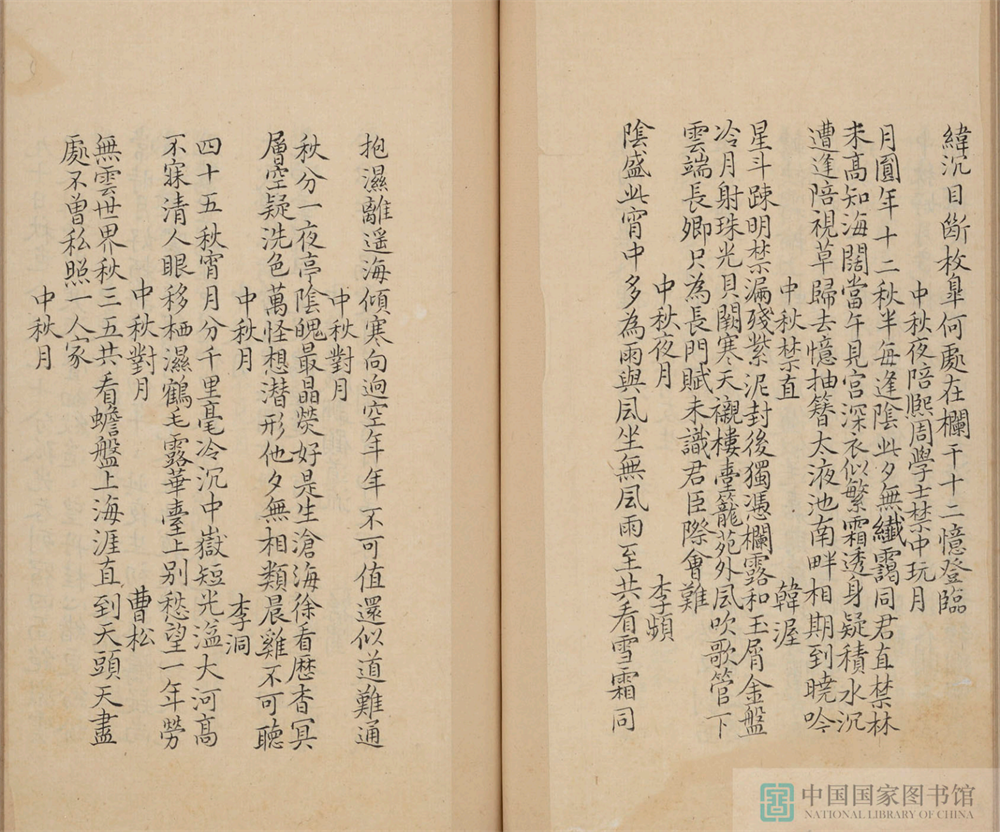 緯沉目斷枚臯何處在欄干十二憶登臨
中秋夜陪熙周學士禁中玩月
月圓年十二秋半每逢陰此夕無纖靄同君直禁林
未高知海闊當午見宮深衣似繁霜透身疑積水沉
遭逢陪視草歸去憶抽簪太液池南畔相期到曉吟
中秋禁直 韓渥
星斗疎明禁漏殘紫泥封後獨憑欄露和玉屑金盤
冷月射珠光貝闕寒天襯樓臺籠苑外風吹歌管下
雲端長卿只為長門賦未識君臣際會難
中秋夜月 李頻
陰盛此宵中多為雨與風坐無風雨至共看雪霜同
抱濕離遥海傾寒向迥空年年不可值還似道難通
中秋對月
秋分一夜亭陰魄最晶熒好是生滄海徐看歷杳冥
層空疑洗色萬怪想潛形他夕無相類晨雞不可聽
中秋月 李洞
四十五秋宵月分千里毫冷沉中嶽短光溢大河高
不寐清人眼移栖濕鶴毛露華臺上別愁望一年勞
中秋對月 曹松
無雲世界秋三五共看蟾盤上海涯直到天頭天盡
處不曾私照一人家
中秋月
中国国家图书馆
NATIONAL LIBRARY OF CHINA